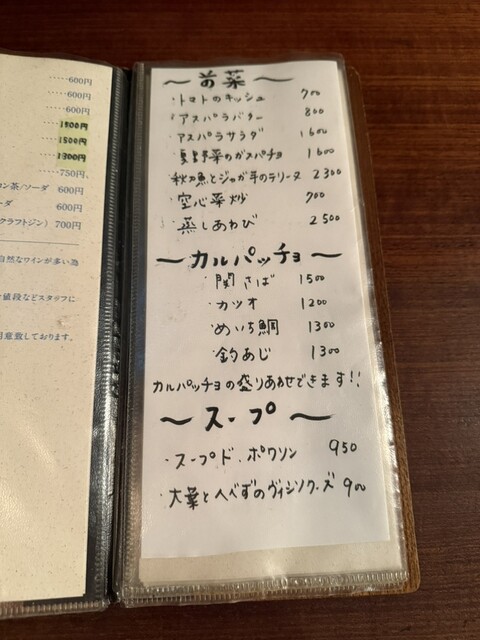 ・・・・・600円
・・・・・600円
・・・・・600円
・・・・・1800円
・・・・・1500円
・・・・・1300円
・・・・・750円
ン茶/ソーダ 600円
ーダ 600円
クラフトジン) 700円
自然なワインが多い為
値段などスタッフに
用意致しております。
〜前菜〜
・トマトのキッシュ 700
・アスパラバター 800
・アスパラサラダ 1600
・夏野菜のガスパチョ 1600
・秋刀魚とジャガ芋のテリーヌ 2300
・空心菜炒 900
・蒸しあわび 2500
〜カルパッチョ〜
・関さば 1500
・カツオ 1200
・めいち鯛 1300
・釣あじ 1300
カルパッチョの盛りあわせできます!!
〜スープ〜
・スープド.ポワソン 950
・大葉と のヴィシソワーズ 900